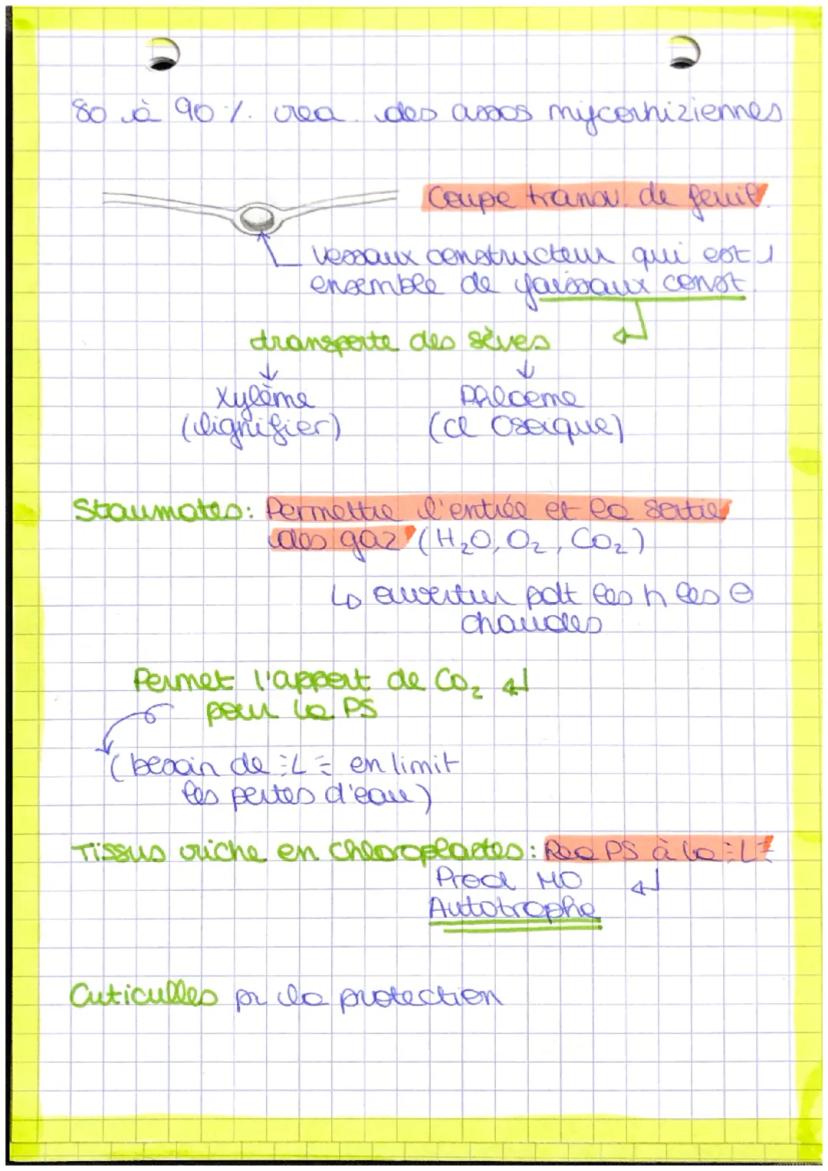 80 à 90% rea des assos mycorhiziennes
Coupe transv. de feuil.
Vessaux constructeur qui est 1
ensemble de faissaux const
transporte des sèves
Xylème Phloeme
(lignifier) (cl Osaique)
Staumates: Permettre l'entrée et la sortie
des gaz (H₂O, O₂, CO₂)
↳ ouvertur pdt les h les ⊖
chaudes
Permet l'apport de CO₂
pour la PS
(besoin de L en limit
les pertes d'eau)
Tissus riche en chloroplastes: Rea PS à la L
Prod MO
Autotrophe
Cuticulles pr la protection